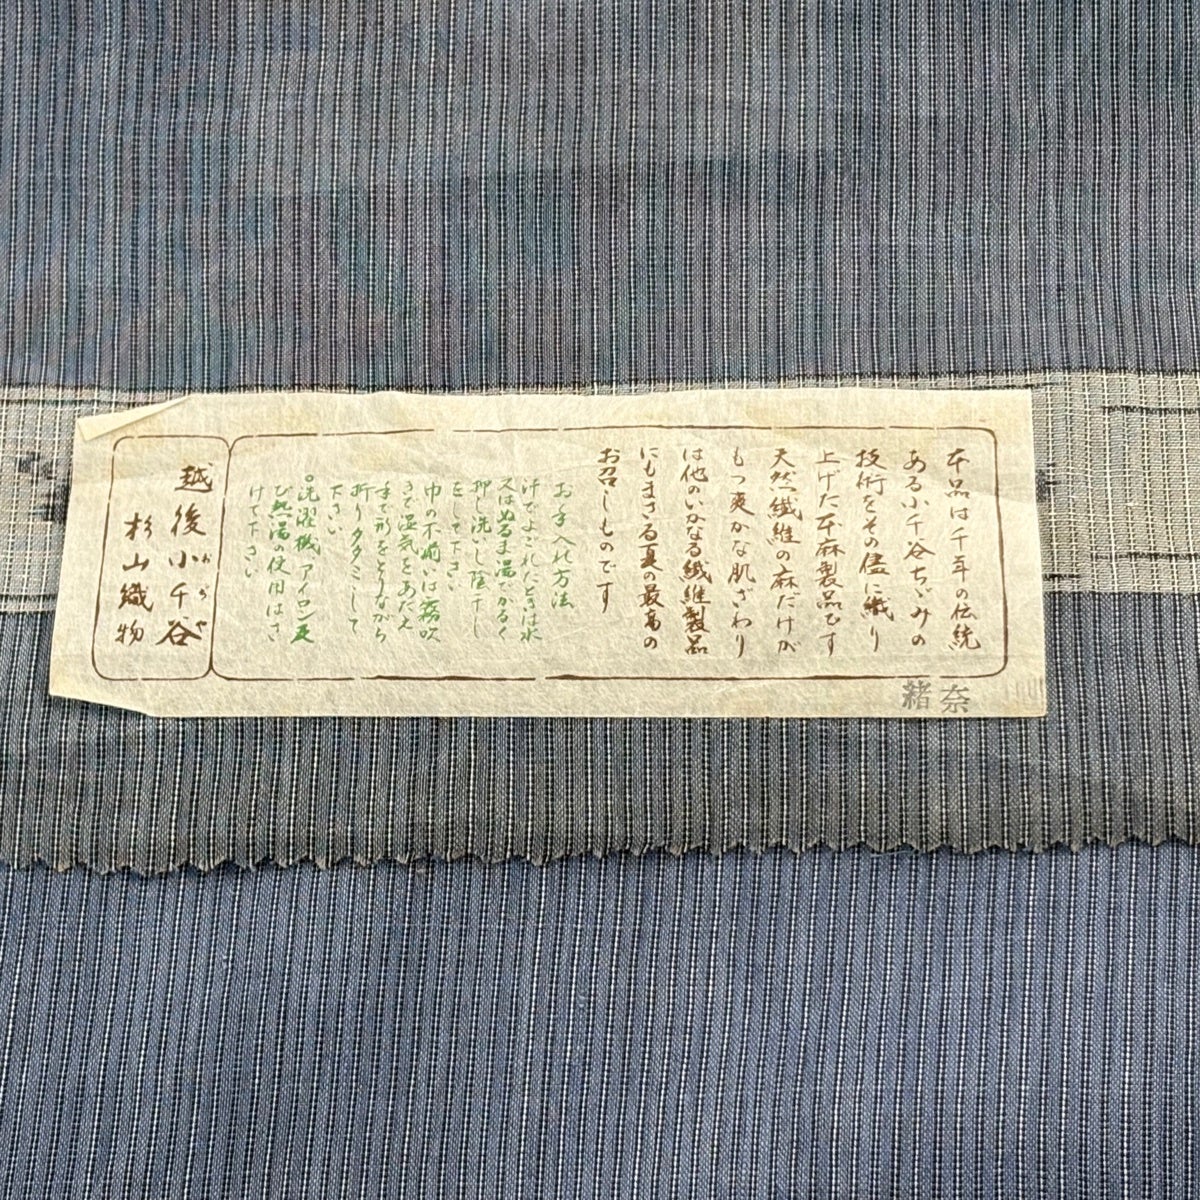 本品は千年の伝統
ある小千谷ちゞみの
技術をその儘に織り
上げた本麻製品です
天然繊維の麻だけが
もつ爽かな肌ざわり
は他のいかなる繊維製品
にもまさる夏の最高の
お召しものです
お手入れ方法
汗でよごれたときは水
又はぬるま湯でかるく
押し洗いし陰干し
をして下さい
巾の不揃いは霧吹
きで湿気をあたえ
手で形をとりながら
折りタタミして
下さい
○洗濯機、アイロン及
び熱湯の使用はさ
けて下さい
越後小千谷
おぢや
杉山織物
緒奈